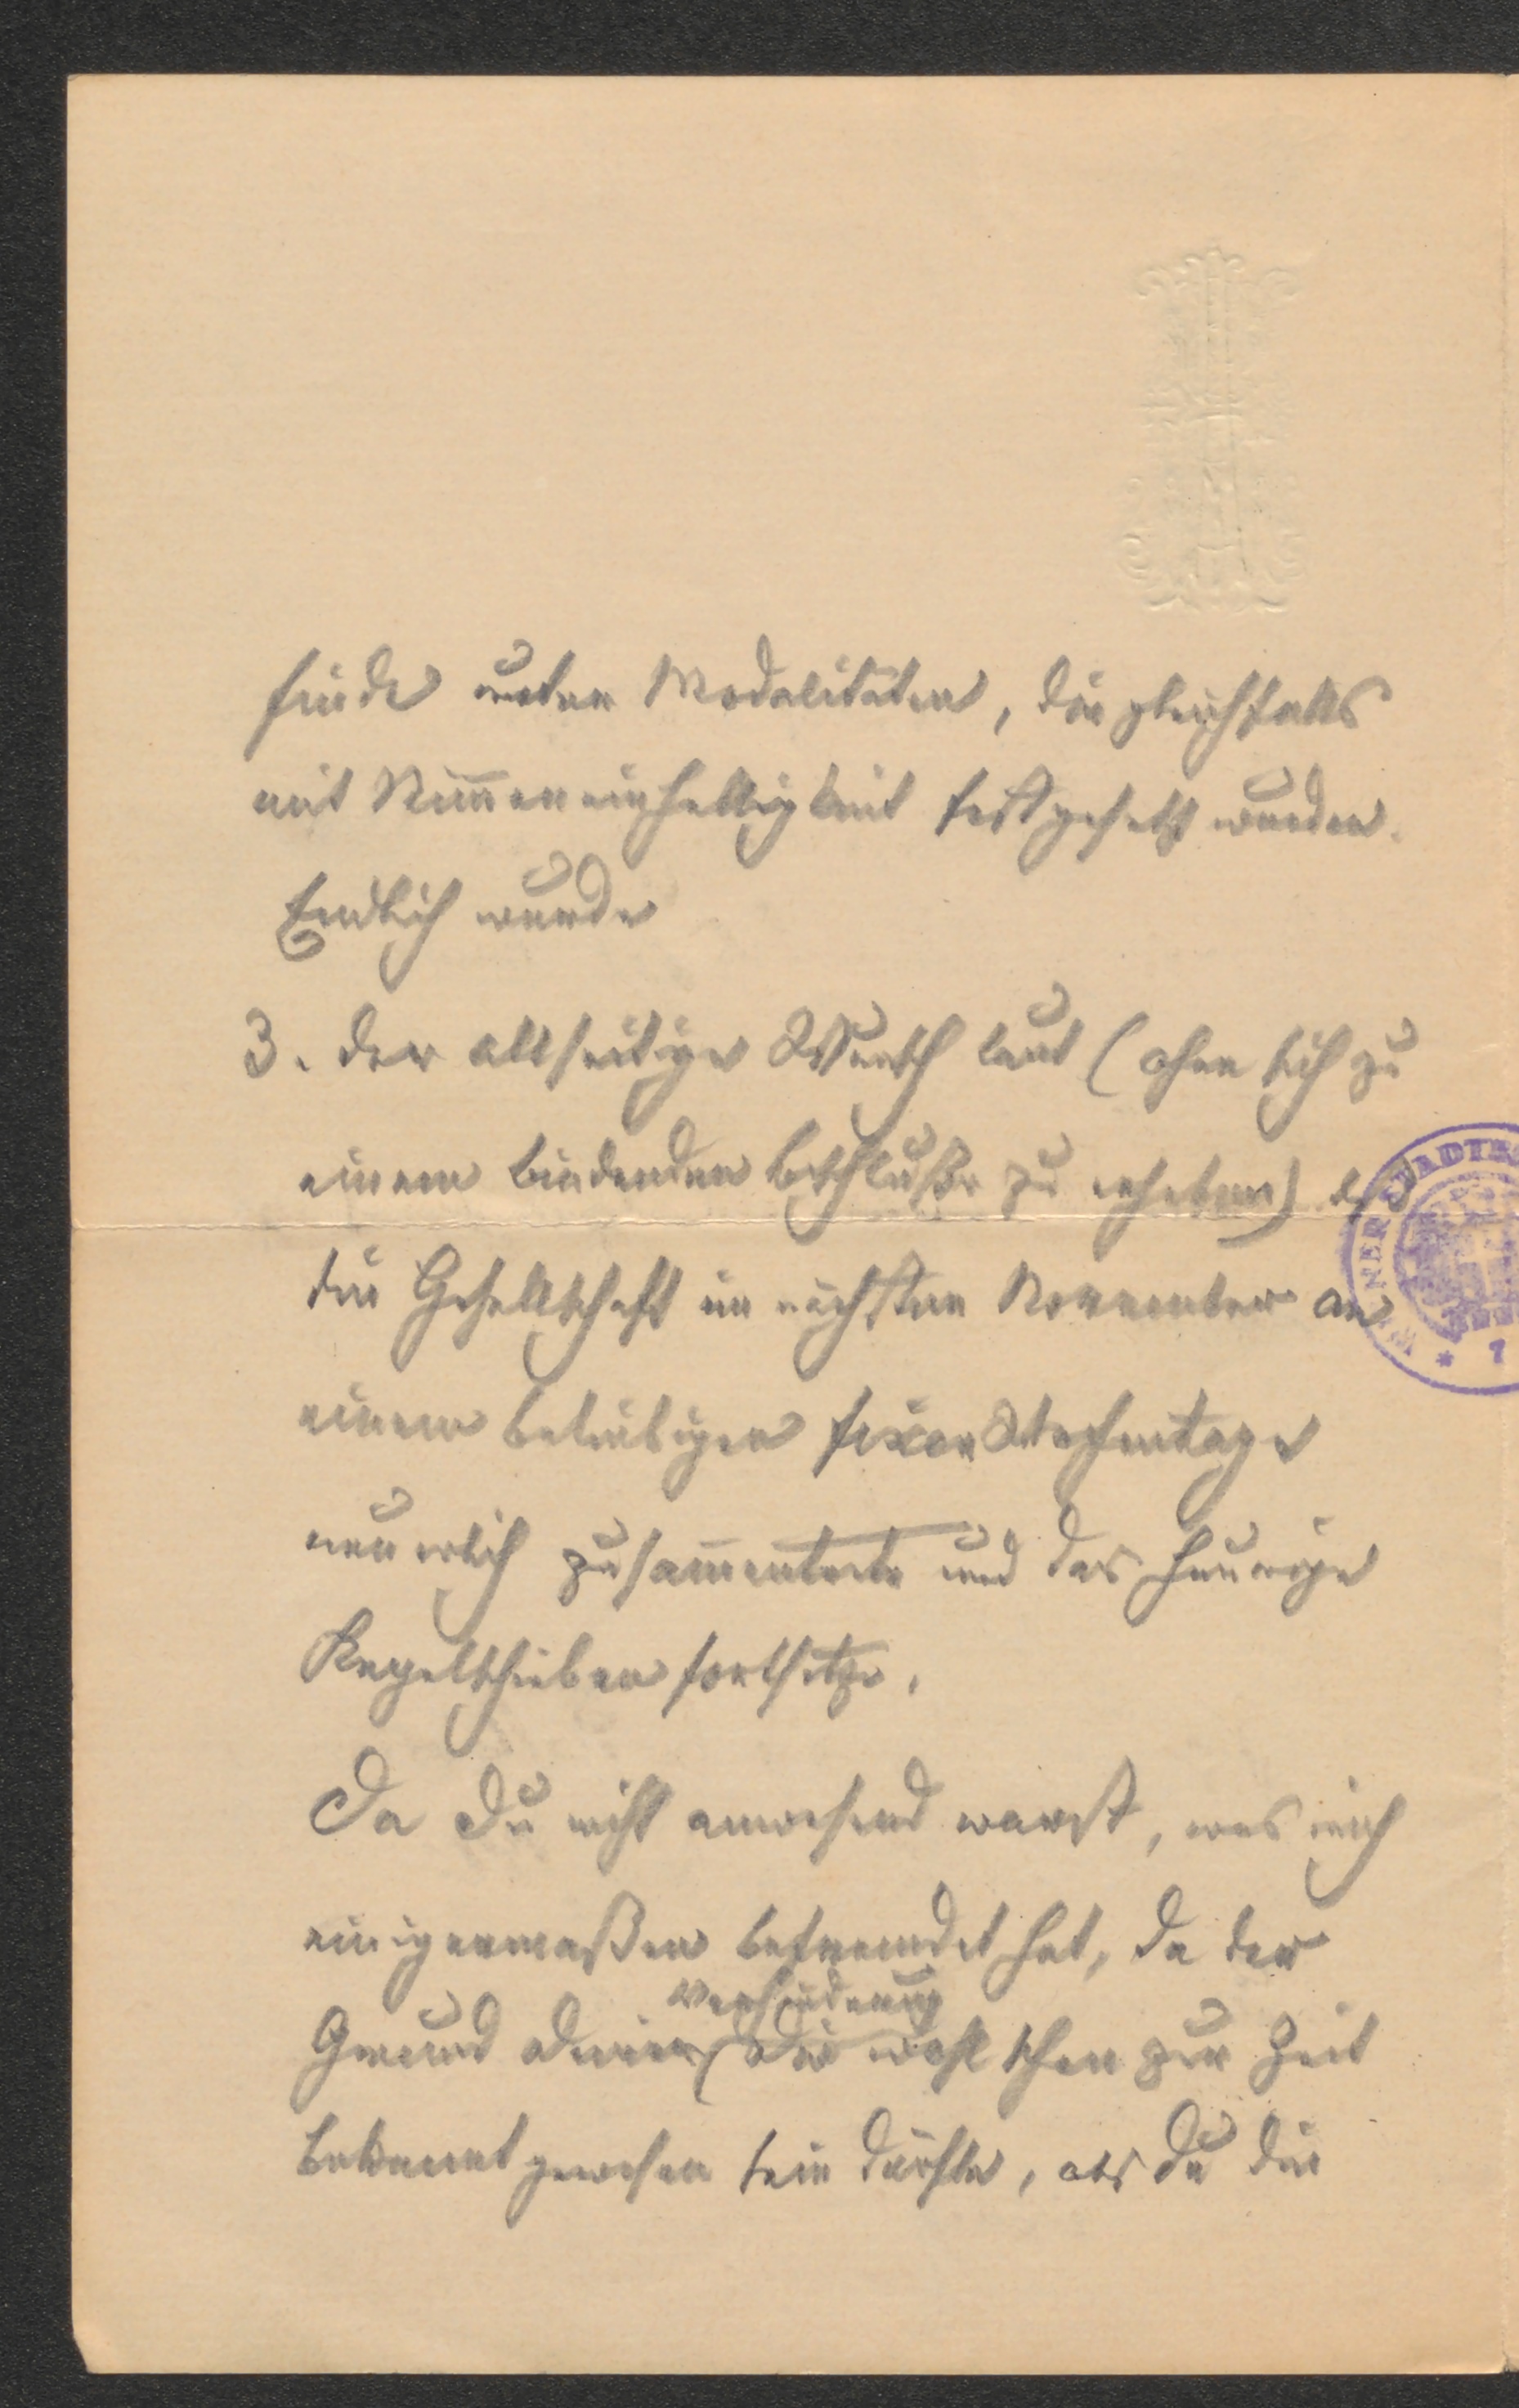 finde unter Modalitäten, die gleichfalls
mit Stim̅eneinhelligkeit festgesetzt wurden.
Endlich wurde
3. der allseitige Wunsch laut (ohne sich zu
einem bindenden Beschluße zu erheben) daß
die Gesellschaft im nächsten November an
einem beliebigen fixen Wochentage
neuerlich zusam̅entrete und das heurige
Kegelschieben fortsetze.
Da Du nicht anwesend warst, was mich
einigermaßen befremdet hat, da der
Verhinderung
Grund deiner Dir wohl schon zur Zeit
bekannt gewesen sein dürfte, als Du die
WIENER STADTB
* 7